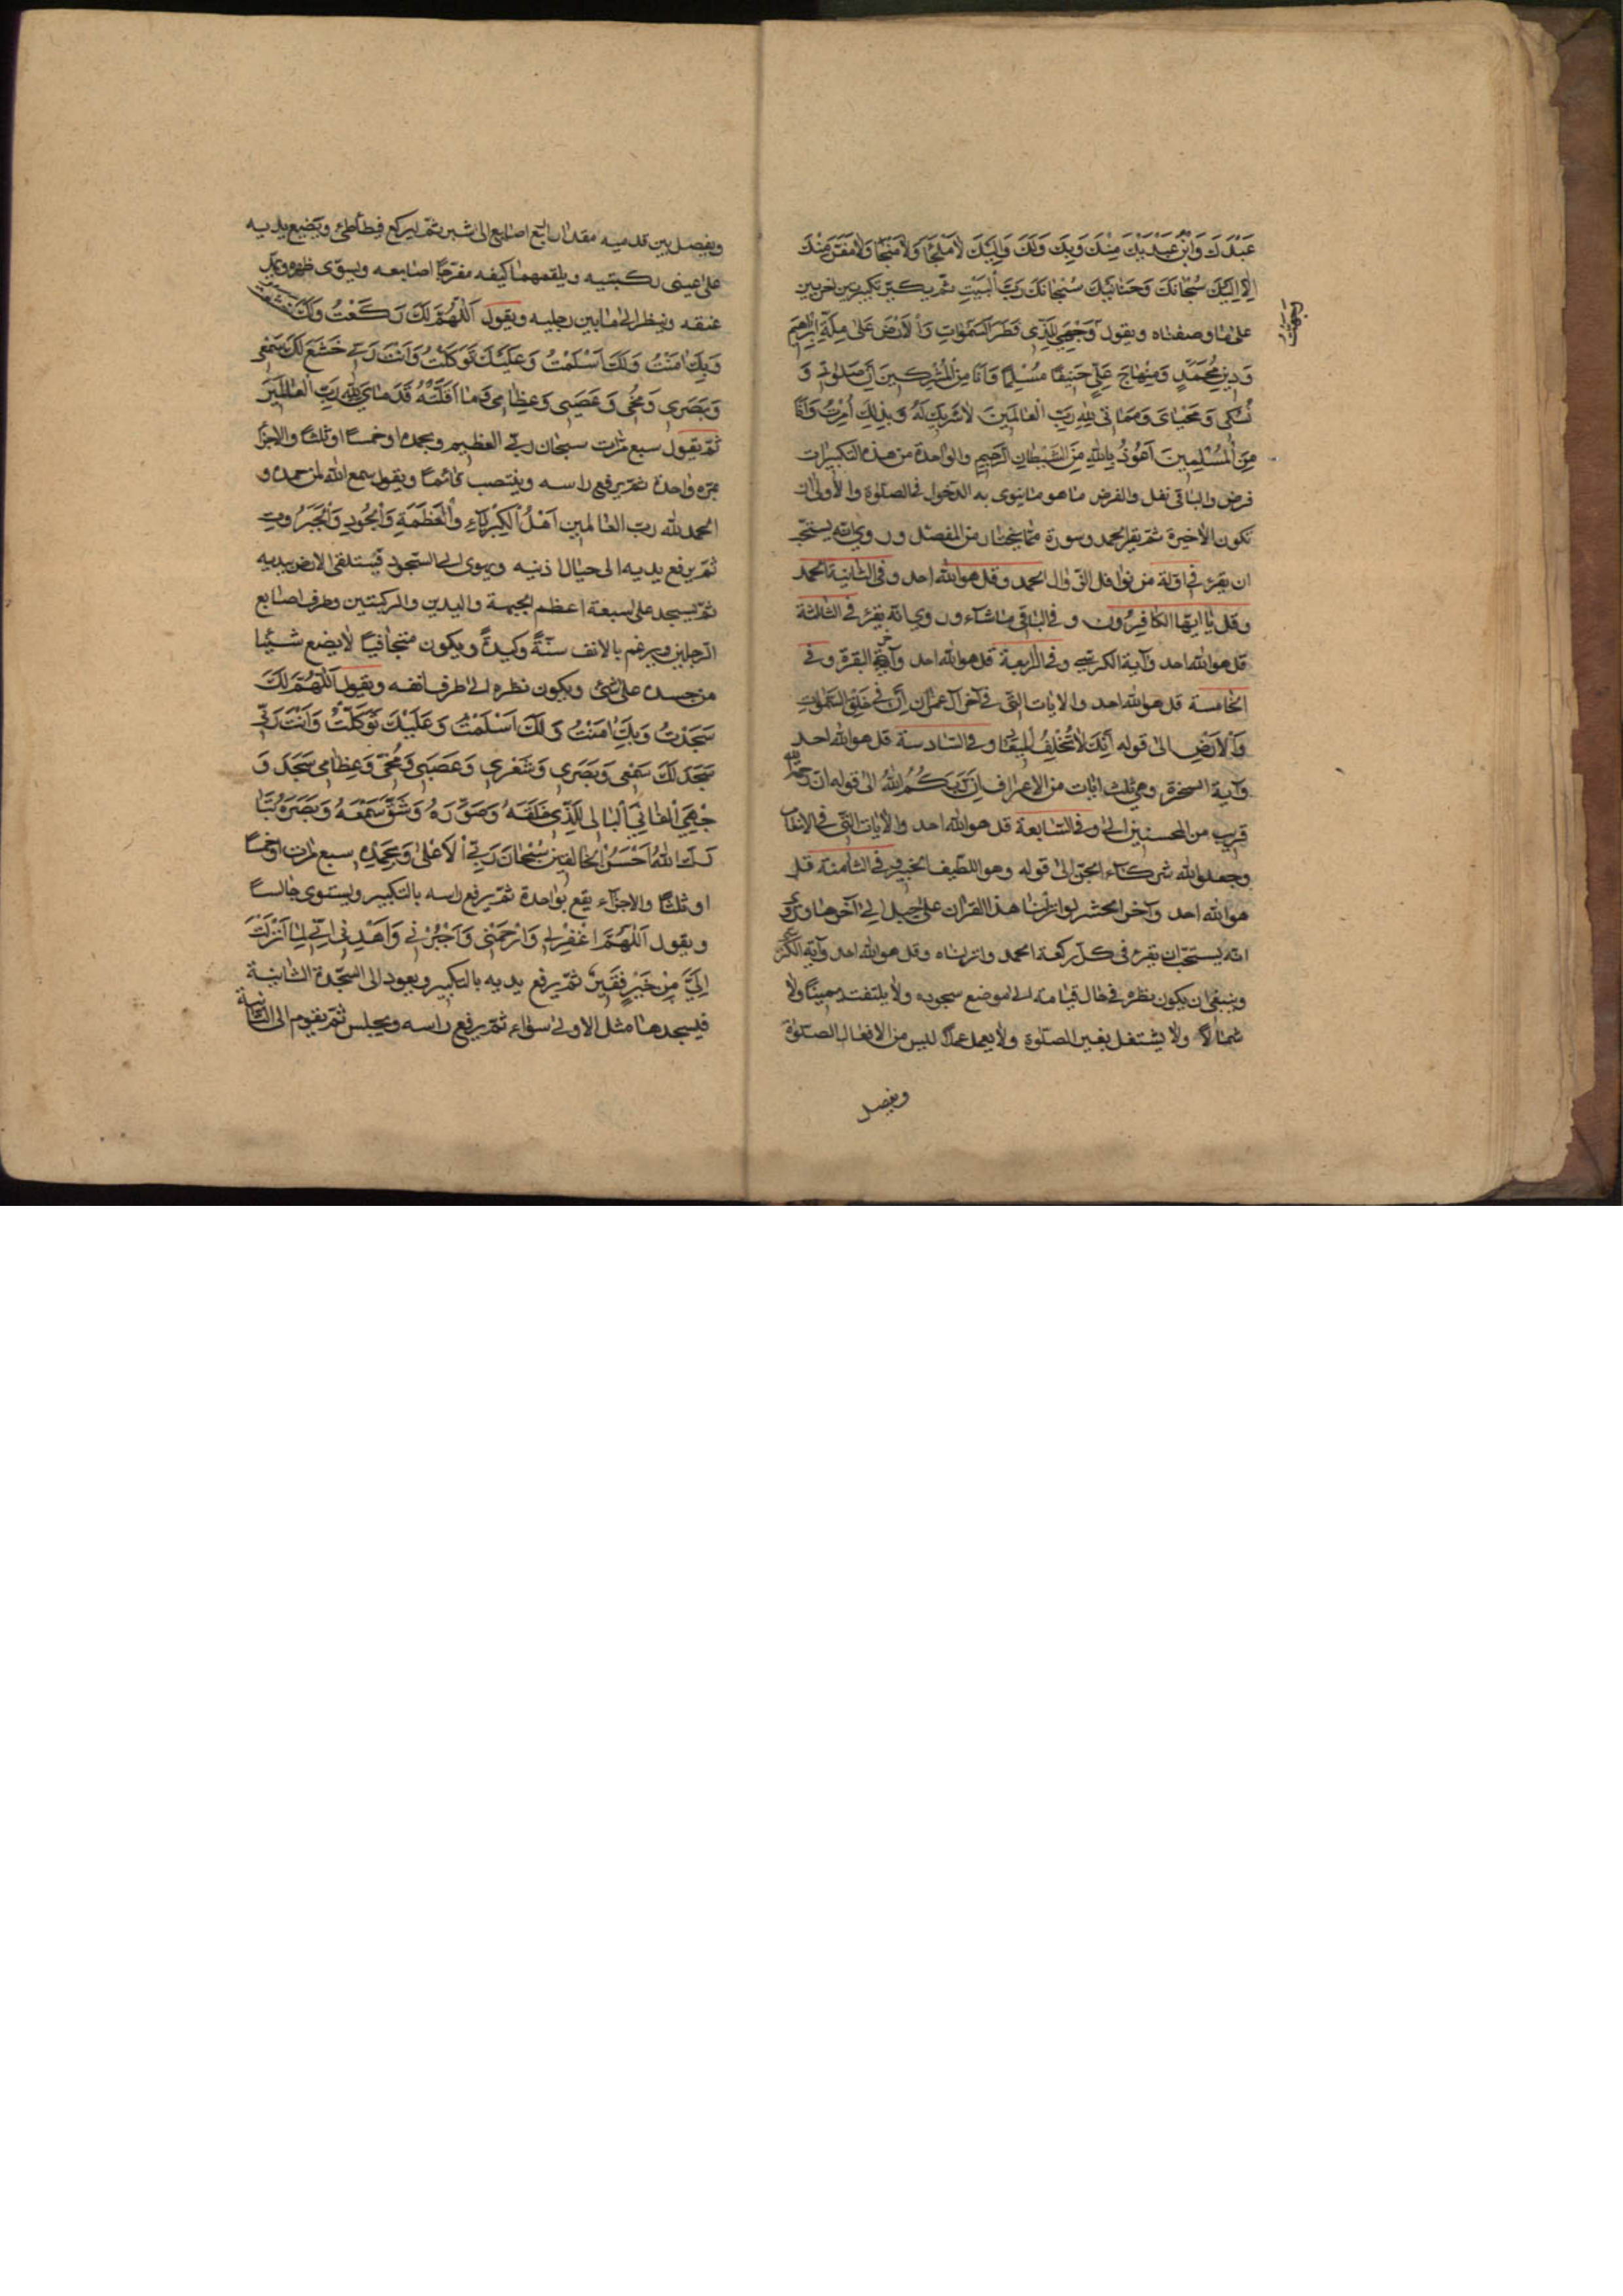 عَبْدُكَ وَابْنُ عَبْدَيْكَ مِنْكَ وَبِكَ وَلَكَ وَاِلَيْكَ لاٰ مَلْجَأَ وَلاٰ مَنْجٰا وَلاٰ مَفَرَّ مِنْكَ
اِلاّٰ اِلَيْكَ سُبْحٰانَكَ وَحَنٰانَيْكَ سُبْحٰانَكَ رَبَّ الْبَيْتِ ثم يكبّر تكبيرتين اخريين
على ما وصفناه ويقول وَجَّهْتُ وَجْهِيَ لِلَّذِي فَطَرَ السَّمٰوٰاتِ وَالْاَرْضَ عَلىٰ مِلَّةِ اِبْرٰاهِيمَ
وَدِينِ مُحَمَّدٍ وَمِنْهٰاجِ عَلِيٍّ حَنِيفًا مُسْلِمًا وَمٰا اَنَا مِنَ الْمُشْرِكِينَ اِنَّ صَلٰوتِي وَ
نُسُكِي وَمَحْيٰايَ وَمَمٰاتِي لِلّٰهِ رَبِّ الْعٰالَمِينَ لاٰ شَرِيكَ لَهُ وَبِذٰلِكَ اُمِرْتُ وَاَنَا
مِنَ الْمُسْلِمِينَ اَعُوذُ بِاللهِ مِنَ الشَّيْطٰانِ الرَّجِيمِ والواحدة من هذه التكبيرات
فرض والباقي نفل والفرض ما هو ما ينوى به الدخول في الصلوة والاولى ان
تكون الاخيرة ثم يقرء الحمد وسورة مما يختار من المفصّل وروي انّه يستحبّ
ان يقرء في اوّلة من نوافل الزوال الحمد وقل هو الله احد وفي الثانية الحمد
وقل يا ايّها الكافرون وفي الباقي ما شاء وروي انّه يقرء في الثالثة
قل هو الله احد وآية الكرسي وفي الرابعة قل هو الله احد وآخر البقرة وفي
الخامسة قل هو الله احد والايات التي في آخر آل عمران اِنَّ فِي خَلْقِ السَّمٰوٰاتِ
وَالْاَرْضِ الى قوله اِنَّكَ لاٰ تُخْلِفُ الْمِيعٰادَ وفي السادسة قل هو الله احد
وآية السخرة وهي ثلث ايات من الاعراف اِنَّ رَبَّكُمُ اللهُ الى قوله انّ رحمة الله
قريب من المحسنين وفي السابعة قل هو الله احد والايات التي في الانعام
وجعلوا لله شركاء الجنّ الى قوله وهو اللطيف الخبير وفي الثامنة قل
هو الله احد وآخر الحشر لو انزلنا هذا القرآن على جبل الى آخرها وروي
انّه يستحبّ ان يقرء في كل ركعة الحمد وانزلناه وقل هو الله احد وآية الكرسي
وينبغي ان يكون نظره في حال قيامه الى موضع سجوده ولا يلتفت يمينا ولا
شمالا ولا يشتغل بغير الصلوة ولا يعمل عملا ليس من افعال الصلوة
ويفصل
ويفصل بين قدميه مقدار اربع اصابع الى شبر ثمّ ليركع فيطأطئ ويضع يديه
على عيني ركبتيه ويلقمهما كفيه مفرّجا اصابعه ويسوّى ظهره ويمدّ
عنقه وينظر الى ما بين رجليه ويقول اَللّٰهُمَّ لَكَ رَكَعْتُ وَلَكَ خَشَعْتُ
وَبِكَ اٰمَنْتُ وَلَكَ اَسْلَمْتُ وَعَلَيْكَ تَوَكَّلْتُ وَاَنْتَ رَبِّي خَشَعَ لَكَ سَمْعِي
وَبَصَرِي وَمُخِّي وَعَصَبِي وَعِظٰامِي وَمٰا اَقَلَّتْهُ قَدَمٰايَ لِلّٰهِ رَبِّ الْعٰالَمِينَ
ثمّ يقول سبع مرات سبحان ربّي العظيم وبحمده او خمسا او ثلثا والاجزاء
بمرّة واحدة ثم يرفع راسه وينتصب قائما ويقول سمع الله لمن حمده و
الحمد لله ربّ العالمين اَهْلُ الْكِبْرِيٰاءِ وَالْعَظَمَةِ وَالْجُودِ وَالْجَبَرُوتِ
ثمّ يرفع يديه الى حيال اذنيه ويهوى الى السجود فيتلقى الارض بيديه
ثمّ يسجد على سبعة اعظم الجبهة واليدين والركبتين وطرف اصابع
الرجلين ويرغم بالانف سنّةً وكيدةً ويكون متجافيًا لا يضع شيئا
من جسده على شيء ويكون نظره الى طرف انفه ويقول اَللّٰهُمَّ لَكَ
سَجَدْتُ وَبِكَ اٰمَنْتُ وَلَكَ اَسْلَمْتُ وَعَلَيْكَ تَوَكَّلْتُ وَاَنْتَ رَبِّي
سَجَدَ لَكَ سَمْعِي وَبَصَرِي وَشَعْرِي وَعَصَبِي وَمُخِّي وَعِظٰامِي سَجَدَ وَ
جْهِيَ الْفٰانِي الْبٰالِي لِلَّذِي خَلَقَهُ وَصَوَّرَهُ وَشَقَّ سَمْعَهُ وَبَصَرَهُ تَبٰا
رَكَ اللهُ اَحْسَنُ الْخٰالِقِينَ سُبْحٰانَ رَبِّيَ الْاَعْلىٰ وَبِحَمْدِهِ سبع مرات او خمسا
او ثلثا والاجزاء يقع بواحدة ثمّ يرفع راسه بالتكبير ويستوى جالسا
ويقول اَللّٰهُمَّ اغْفِرْ لِي وَارْحَمْنِي وَاجْبُرْنِي وَاهْدِنِي اِنِّي لِمٰا اَنْزَلْتَ
اِلَيَّ مِنْ خَيْرٍ فَقِيرٌ ثمّ يرفع يديه بالتكبير ويعود الى السجدة الثانية
فيسجدها مثل الاولى سواء ثمّ يرفع راسه ويجلس ثمّ يقوم الى الثانية